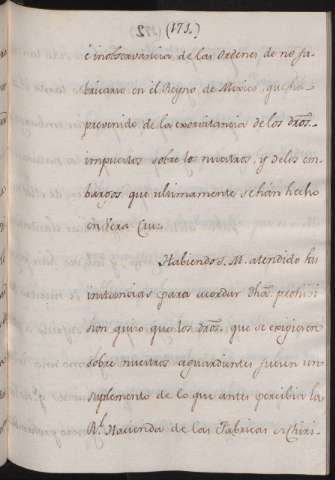 (171.)
é inobservancia de las ordenes de no fa-
bricarse en el Reyno de Mexico, que há
prevenido de la exorvitancia de los dros.
impuestos sobre los nuestros, y de los em-
bargos que ultimamente se hán hecho
en Vera Cruz.
Habiendo S. M. atendido las
instancias para acordar dha prohivi-
sion quiso que los dros. que se exigieron
sobre nuestros aguardientes fuesen un
suplemento de lo que antes percibia la
Rl. Hacienda de las Fabricas